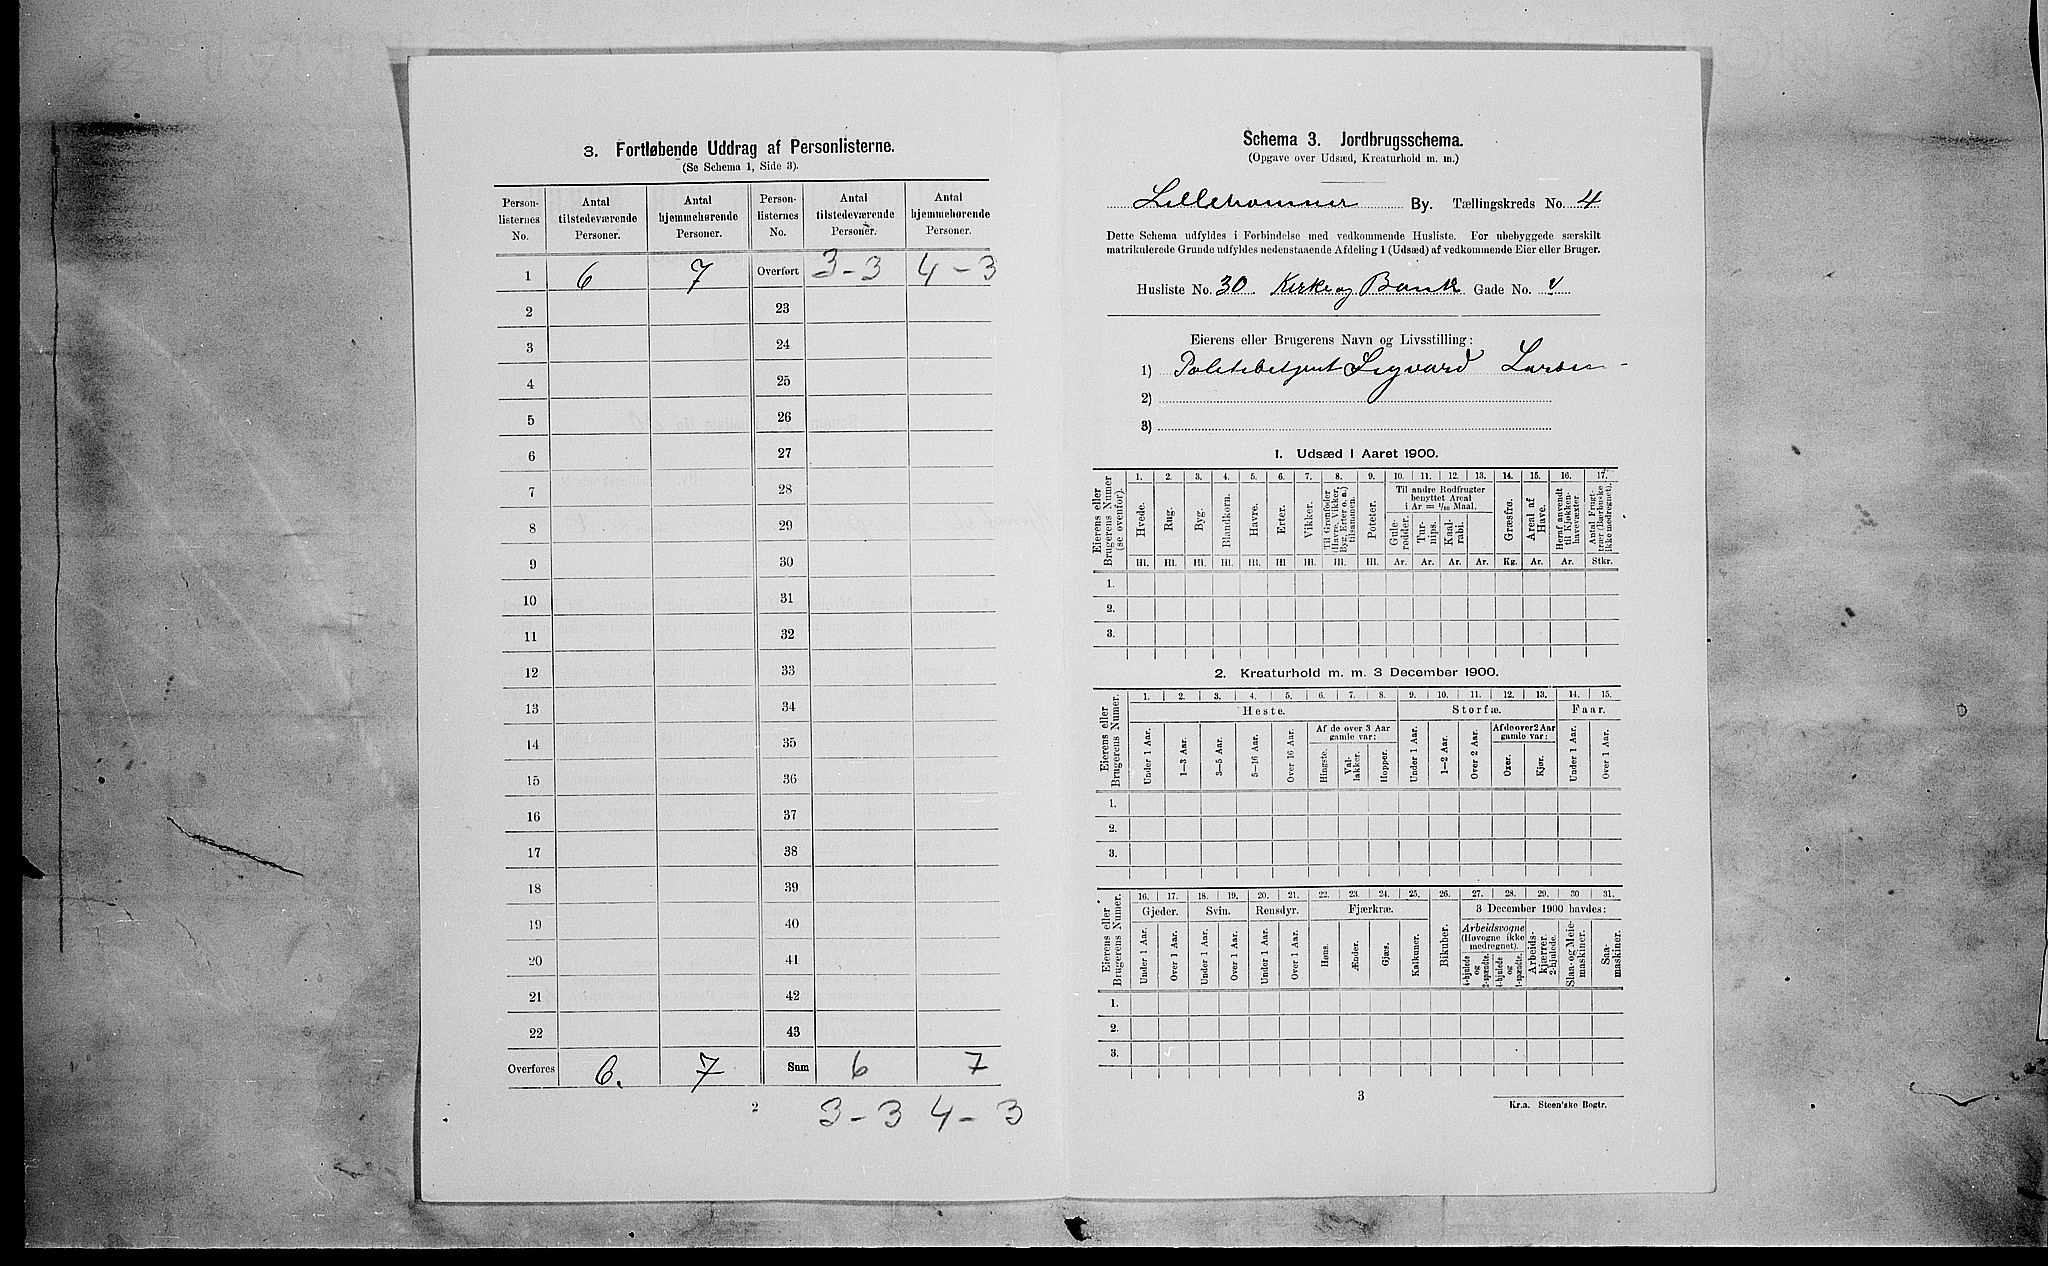 3. Fortløbende Uddrag af Personlisterne.
(Se Schema 1, Side 3).
Person-listernes No. | Antal tilstedeværende Personer. | Antal hjemmehørende Personer. | Person-listernes No. | Antal tilstedeværende Personer. | Antal hjemmehørende Personer.
1 6 7 Overført 3-3 4-3
2 23
3 24
4 25
5 26
6 27
7 28
8 29
9 30
10 31
11 32
12 33
13 34
14 35
15 36
16 37
17 38
18 39
19 40
20 41
21 42
22 43
Overføres 6. 7 Sum 6 7
2 3-3 4-3
Schema 3. Jordbrugsschema.
(Opgave over Udsæd, Kreaturhold m. m.)
Lillehammer By. Tællingskreds No. 4
Dette Schema udfyldes i Forbindelse med vedkommende Husliste. For ubebyggede særskilt
matrikulerede Grunde udfyldes nedenstaaende Afdeling 1 (Udsæd) af vedkommende Eier eller Bruger.
Husliste No. 30. Kirke og Bank Gade No.
Eierens eller Brugerens Navn og Livsstilling:
1) Politibetjent Sigvard Larsen
2)
3)
1. Udsæd i Aaret 1900.
1. 2. 3. 4. 5. 6. 7. 8. 9. 10. 11. 12. 13. 14. 15. 16. 17.
Eierens eller Brugerens Numer (se ovenfor).
Hvede. Rug. Byg. Blandkorn. Havre. Erter. Vikker. Til Grønfoder (Havre, Vikker, Byg, Erter o. a.) tilsammen. Poteter.
Til andre Rodfrugter benyttet Areal i Ar = 1/10 Maal.
Gulerødder. Turnips. Kaalrabi.
Græsfrø. Areal af Have. Heraf anvendt til Kjøkkenhavevæxter. Antal Frugttrær (Bærbuske ikke medregnet).
Hl. Hl. Hl. Hl. Hl. Hl. Hl. Hl. Hl. Ar. Ar. Ar. Ar. Kg. Ar. Ar. Stkr.
1.
2.
3.
2. Kreaturhold m. m. 3 December 1900.
1. 2. 3. 4. 5. 6. 7. 8. 9. 10. 11. 12. 13. 14. 15.
Eierens eller Brugerens Numer.
Heste. Storfæ. Faar.
Af de over 3 Aar gamle var: Af de over 2 Aar gamle var:
Under 1 Aar. 1—3 Aar. 3—5 Aar. 5—16 Aar. Over 16 Aar. Hingste. Vallakker. Hopper. Under 1 Aar. 1—2 Aar. Over 2 Aar. Oxer. Kjør. Under 1 Aar. Over 1 Aar.
1.
2.
3.
16. 17. 18. 19. 20. 21. 22. 23. 24. 25. 26. 27. 28. 29. 30 31.
Eierens eller Brugerens Numer.
Gjeder. Svin. Rensdyr. Fjærkræ. Bikuber. 3 December 1900 havdes:
Arbeidsvogne (Høvogne ikke medregnet).
Under 1 Aar. Over 1 Aar. Under 1 Aar. Over 1 Aar. Under 1 Aar. Over 1 Aar. Høns. Ænder. Gjæs. Kalkuner. 4-hjulede og 2-spændte. 4-hjulede og 1-spændte. Arbeidskjærrer 2-hjulede. Slaa- og Meiemaskiner. Saamaskiner.
1.
2.
3.
3
Kr.a. Steen'ske Bogtr.